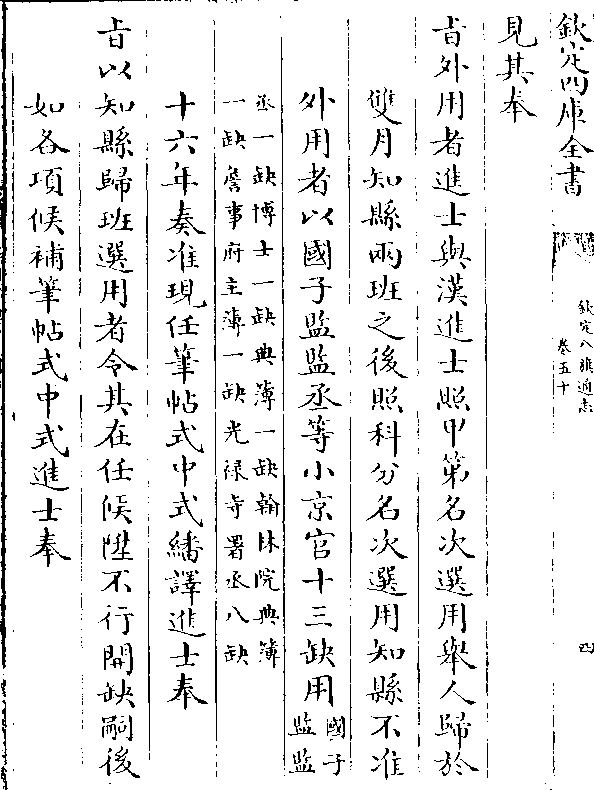 欽定四庫全書
欽定八旗通志
卷五十
四
見其奉
旨外用者進士與漢進士照甲第名次選用舉人歸於
雙月知縣兩班之後照科分名次選用知縣不准
外用者以國子監監丞等小京官十三缺用國子監監
丞一缺博士一缺典簿一缺翰林院典簿
一缺詹事府主簿一缺光祿寺署丞八缺
十六年奏准現任筆帖式中式繙譯進士奉
旨以知縣歸班選用者令其在任候陞不行開缺嗣後
如各項候補筆帖式中式進士奉